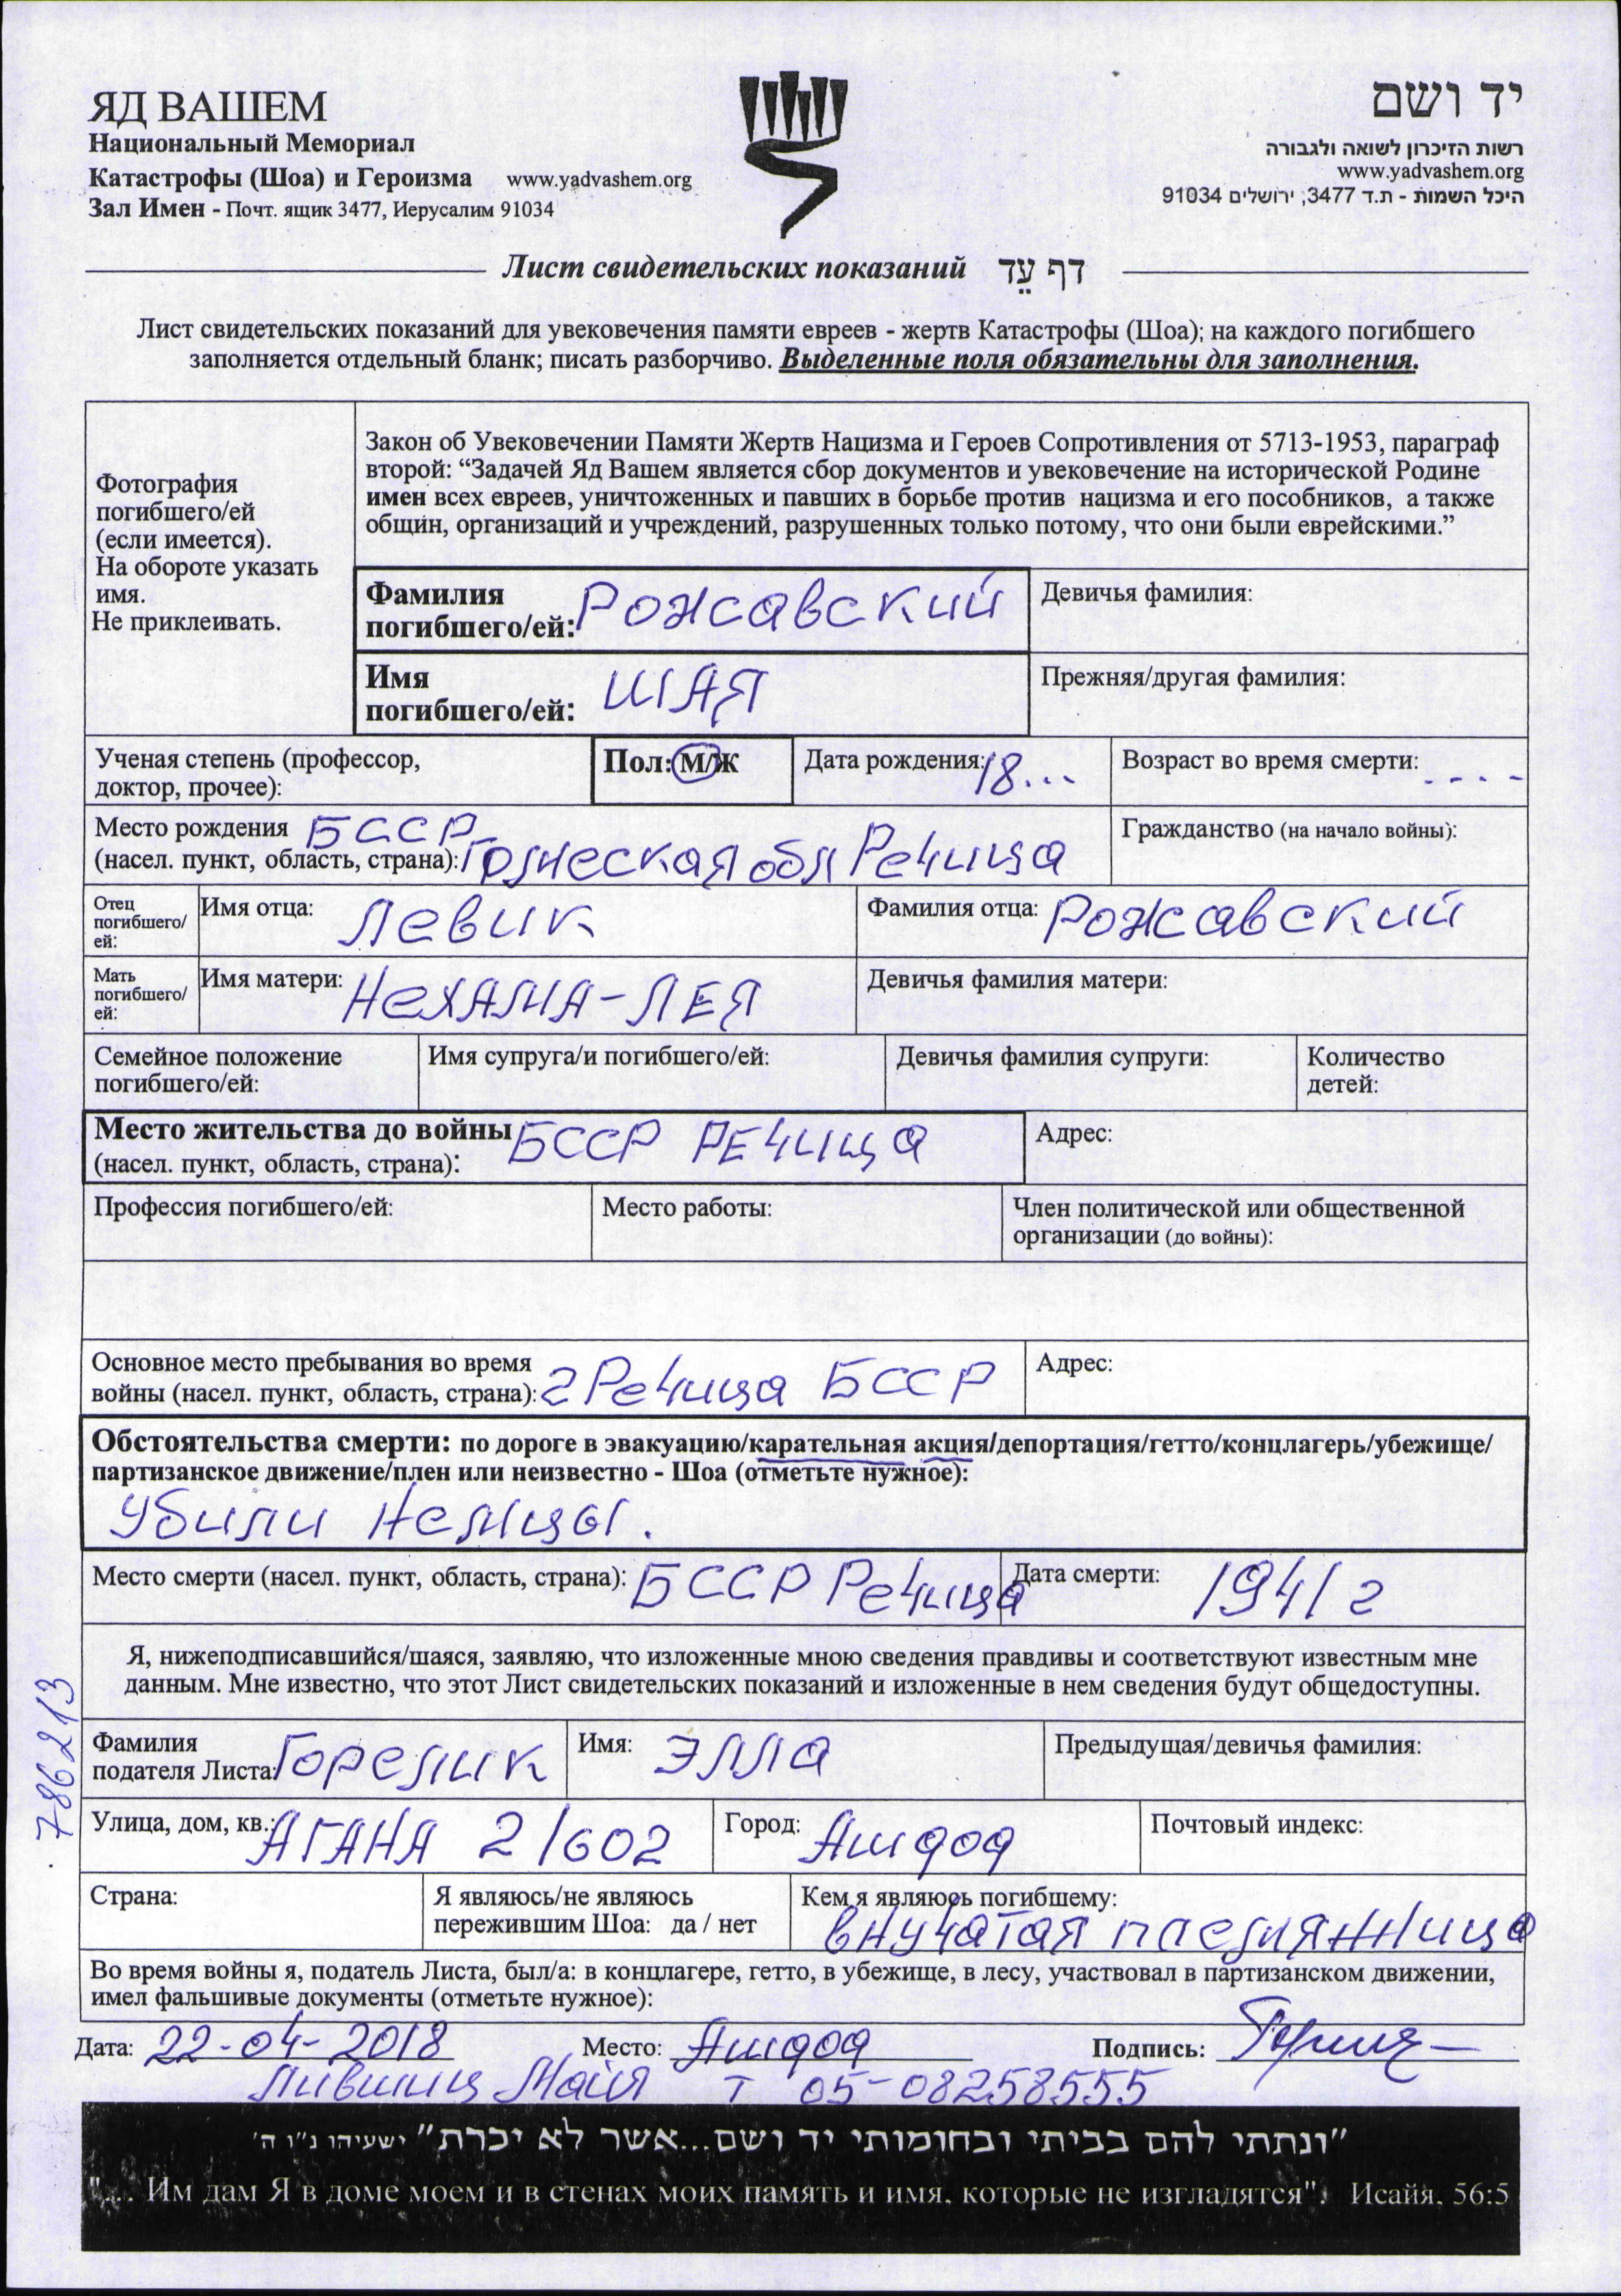 ЯД ВАШЕМ
Национальный Мемориал
Катастрофы (Шоа) и Героизма www.yadvashem.org
Зал Имен - Почт. ящик 3477, Иерусалим 91034
יד ושם
רשות הזיכרון לשואה ולגבורה
www.yadvashem.org
היכל השמות - ת.ד 3477, ירושלים 91034
Лист свидетельских показаний דף עֵד
Лист свидетельских показаний для увековечения памяти евреев - жертв Катастрофы (Шоа); на каждого погибшего
заполняется отдельный бланк; писать разборчиво. Выделенные поля обязательны для заполнения.
Фотография
погибшего/ей
(если имеется).
На обороте указать
имя.
Не приклеивать.
Закон об Увековечении Памяти Жертв Нацизма и Героев Сопротивления от 5713-1953, параграф
второй: “Задачей Яд Вашем является сбор документов и увековечение на исторической Родине
имен всех евреев, уничтоженных и павших в борьбе против нацизма и его пособников, а также
общин, организаций и учреждений, разрушенных только потому, что они были еврейскими.”
Фамилия
погибшего/ей: Рожавский
Девичья фамилия:
Имя
погибшего/ей: ШАЯ
Прежняя/другая фамилия:
Ученая степень (профессор,
доктор, прочее):
Пол: М/Ж
Дата рождения: 18...
Возраст во время смерти: ----
Место рождения БССР
(насел. пункт, область, страна): Гомеская обл Речица
Гражданство (на начало войны):
Отец
погибшего/
ей:
Имя отца: Левик
Фамилия отца: Рожавский
Мать
погибшего/
ей:
Имя матери: НеХАМА-ЛЕЯ
Девичья фамилия матери:
Семейное положение
погибшего/ей:
Имя супруга/и погибшего/ей:
Девичья фамилия супруги:
Количество
детей:
Место жительства до войны БССР РЕЧица
(насел. пункт, область, страна):
Адрес:
Профессия погибшего/ей:
Место работы:
Член политической или общественной
организации (до войны):
Основное место пребывания во время
войны (насел. пункт, область, страна): г Речица БССР
Адрес:
Обстоятельства смерти: по дороге в эвакуацию/карательная акция/депортация/гетто/концлагерь/убежище/
партизанское движение/плен или неизвестно - Шоа (отметьте нужное):
Убили Немцы.
Место смерти (насел. пункт, область, страна): БССР Речица
Дата смерти: 1941 г
Я, нижеподписавшийся/шаяся, заявляю, что изложенные мною сведения правдивы и соответствуют известным мне
данным. Мне известно, что этот Лист свидетельских показаний и изложенные в нем сведения будут общедоступны.
786213
Фамилия
подателя Листа: Горелик
Имя: Элла
Предыдущая/девичья фамилия:
Улица, дом, кв.: АГАНА 2/602
Город: Ашдод
Почтовый индекс:
Страна:
Я являюсь/не являюсь
пережившим Шоа: да / нет
Кем я являюсь погибшему:
внучатая племянница
Во время войны я, податель Листа, был/а: в концлагере, гетто, в убежище, в лесу, участвовал в партизанском движении,
имел фальшивые документы (отметьте нужное):
Дата: 22-04-2018 Место: Ашдод Подпись:
Лившиц Майя т 05-08258555
"ונתתי להם בביתי ובחומותי יד ושם...אשר לא יכרת" ישעיהו נ"ו ה'
"... Им дам Я в доме моем и в стенах моих память и имя, которые не изгладятся". Исайя, 56:5